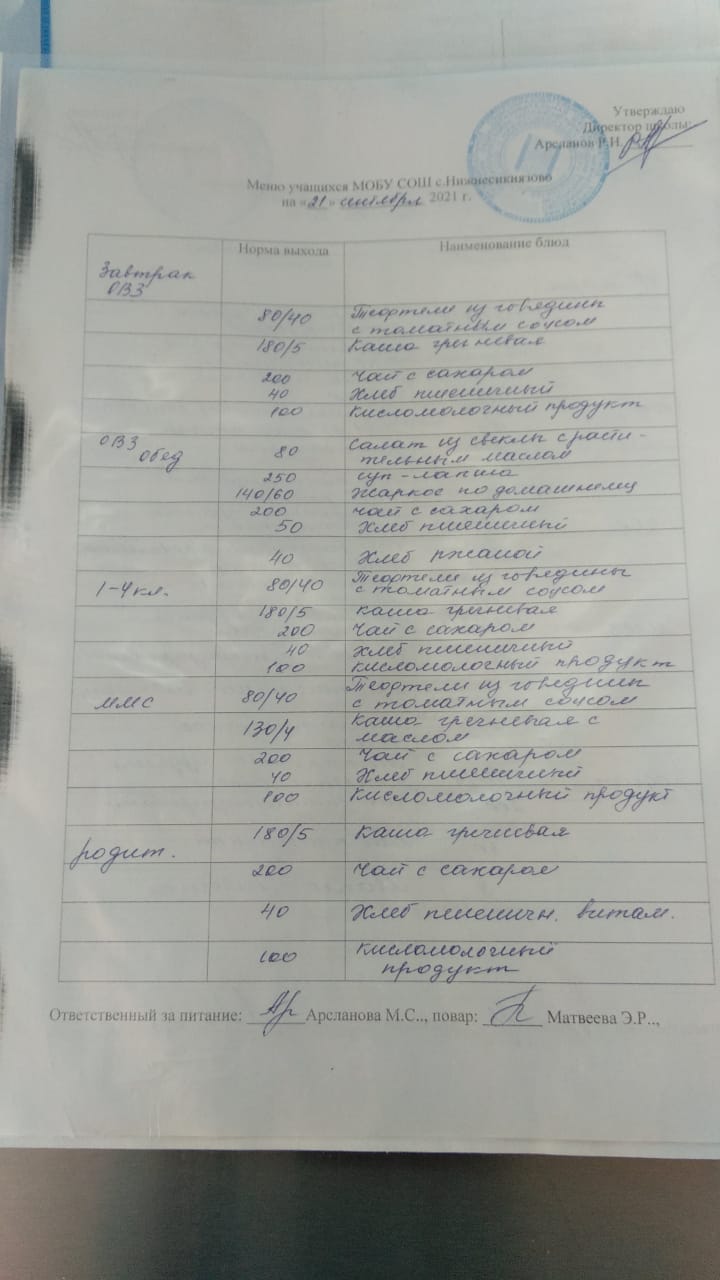 Утверждаю
Директор школы:
Арсланов Р.И.
Меню учащихся МОБУ СОШ с.Нижнесикиязово
на «21» сентября 2021 г.
Норма выхода Наименование блюд
Завтрак
ОВЗ
80/40 Тефтели из говядины
с томатным соусом
180/5 Каша гречневая
200 Чай с сахаром
40 Хлеб пшеничный
100 Кисломолочный продукт
ОВЗ
обед
80 Салат из свеклы с расти-
тельным маслом
250 Суп-лапша
140/60 Жаркое по домашнему
200 Чай с сахаром
50 Хлеб пшеничный
40 Хлеб ржаной
1-4 кл. 80/40 Тефтели из говядины
с томатным соусом
180/5 Каша гречневая
200 Чай с сахаром
40 Хлеб пшеничный
100 Кисломолочный продукт
ммс 80/40 Тефтели из говядины
с томатным соусом
130/4 Каша гречневая с
маслом
200 Чай с сахаром
40 Хлеб пшеничный
100 Кисломолочный продукт
родит. 180/5 Каша гречневая
200 Чай с сахаром
40 Хлеб пшеничн. витам.
100 Кисломолочный
продукт
Ответственный за питание: Арсланова М.С.., повар: Матвеева Э.Р..,